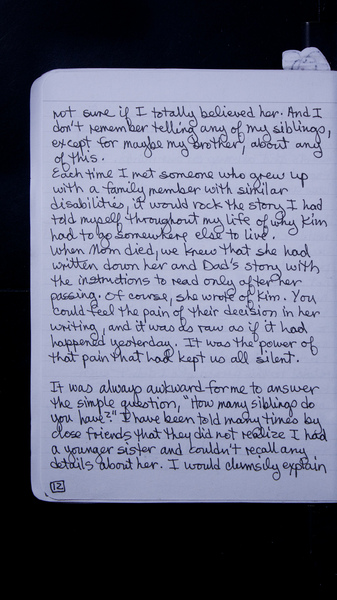 not sure if I totally believed her. And I
don't remember telling any of my siblings,
except for maybe my brother, about any
of this.
Each time I met someone who grew up
with a family member with similar
disabilities, it would rock the story I had
told myself throughout my life of why Kim
had to go somewhere else to live.
When Mom died, we knew that she had
written down her and Dad's story with
the instructions to read only after her
passing. Of course, she wrote of Kim. You
could feel the pain of their decision in her
writing, and it was as raw as if it had
happened yesterday. It was the power of
that pain that had kept us all silent.
It was always awkward for me to answer
the simple question, "How many siblings do
you have?" I have been told many times by
close friends that they did not realize I had
a younger sister and couldn't recall any
details about her. I would clumsily explain
12